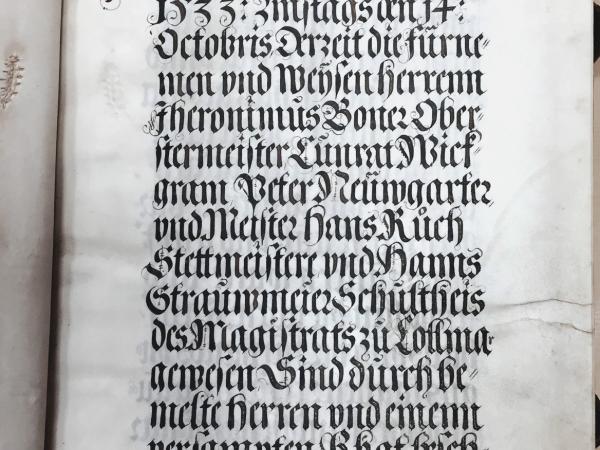 1533: Zinstags den 14:
Octobris Derzeit die fürne⸗
men vnd Weÿsen herrenn
Jheronimus Boner Ober⸗
stermeister Cůnrat Wick⸗
gram Peter Neüwgarter
vnd Meister Hans Růch
Stettmeistere vnd Hanns
Strauwmeier Schultheis
des Magistrats zů Collmar
gewesen Sind durch be⸗
melte herren vnd einem
versampten Rhat besch